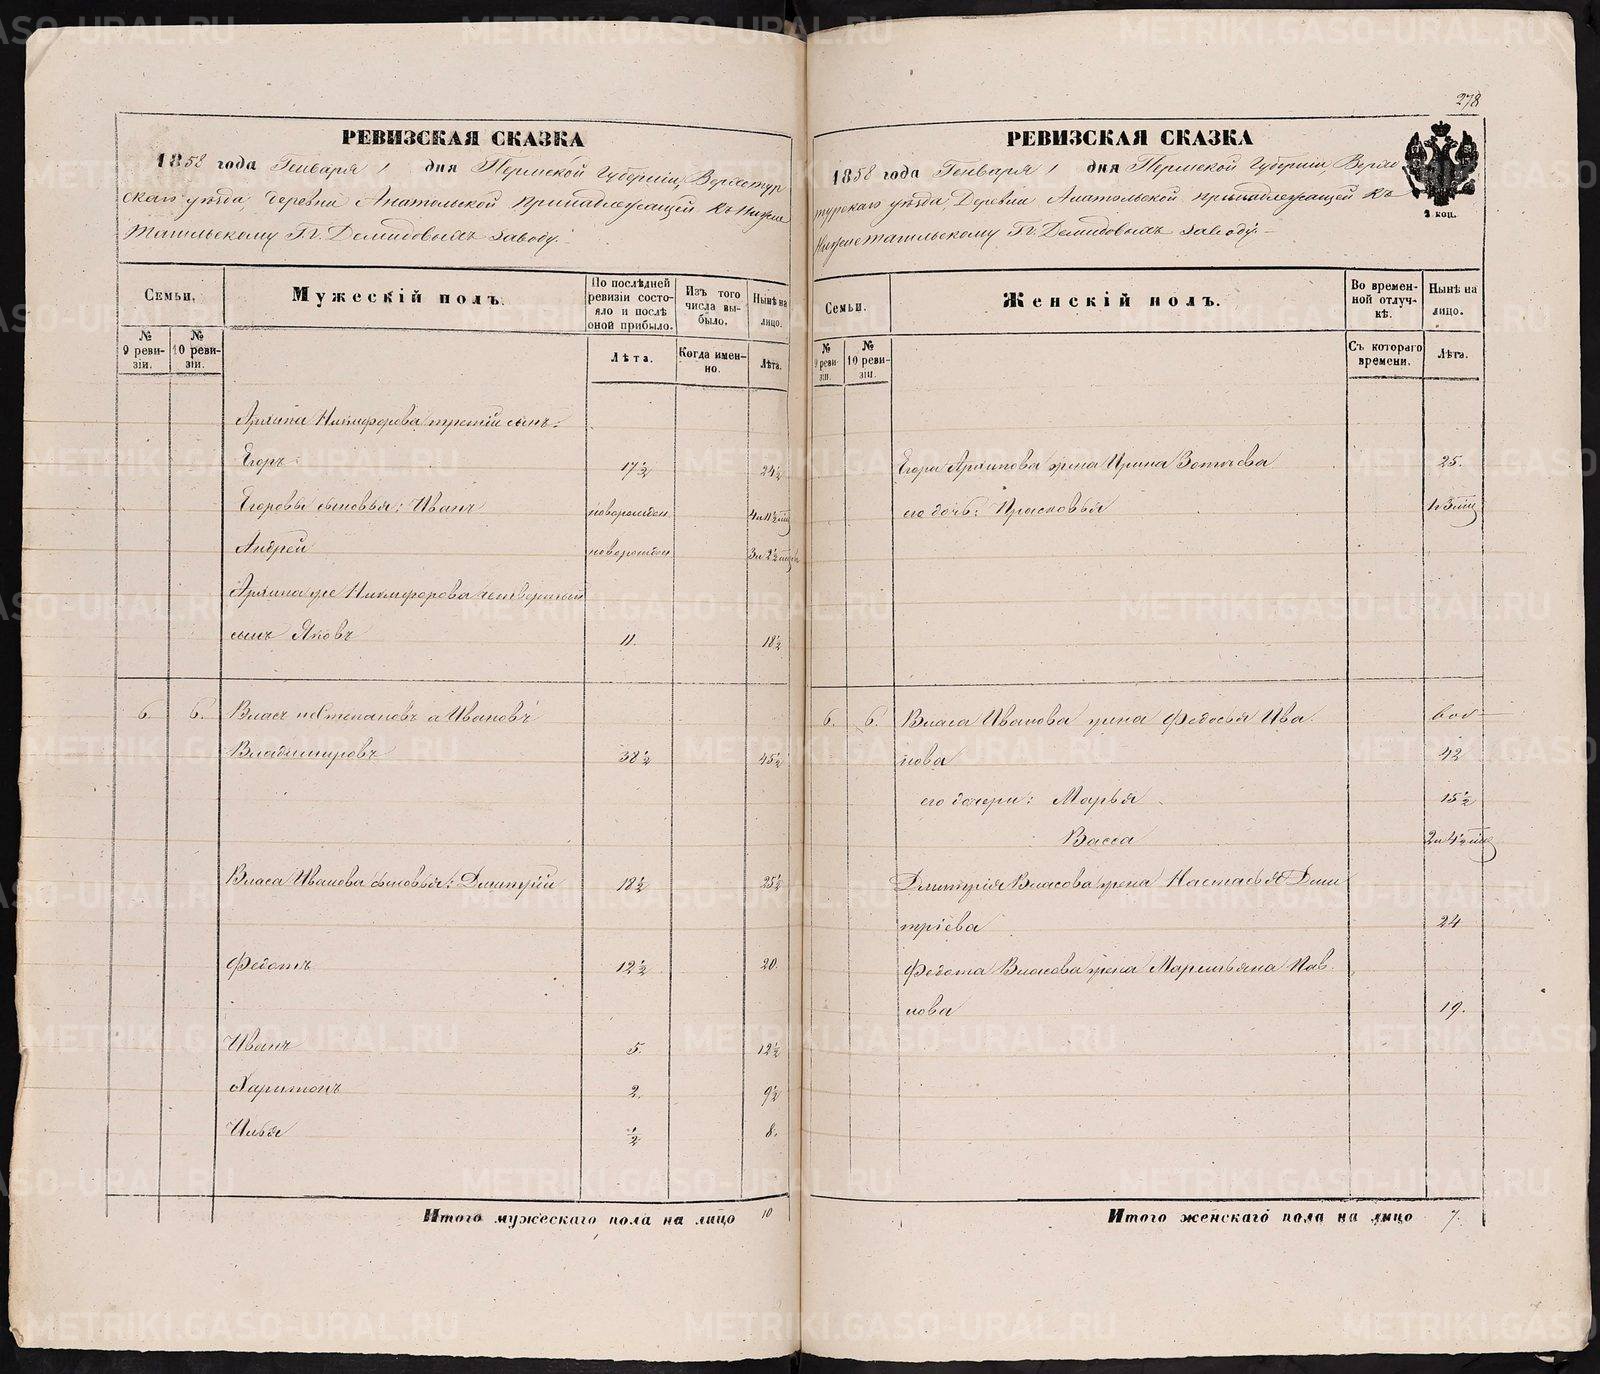 РЕВИЗСКАЯ СКАЗКА
1858 года Генваря 1 дня Пермской Губерніи, Верхотур
скаго уѣзда, деревни Анатольской принадлежащей къ Нижне
Тагильскому Гг. Демидовыхъ заводу.
Семьи.
Мужескій полъ.
По послѣдней ревизіи состояло и послѣ оной прибыло.
Изъ того числа выбыло.
Нынѣ на лицо.
№ 9 ревизіи.
№ 10 ревизіи.
Лѣта.
Когда именно.
Лѣта.
Архипа Никифорова третій сынъ:
Егоръ 17½ 24½
Егоровы сыновья: Иванъ новорожден 4 и 11½ мц
Андрей новорожден 3 и 2½ мц
Архипа же Никифорова четвертый
сынъ Яковъ 11. 18½
6 6. Власъ по Степановъ а Ивановъ
Владимировъ 38½ 45½
Власа Иванова сыновья: Дмитрій 18½ 25½
Федотъ 12½ 20.
Иванъ 5. 12½
Харитонъ 2. 9½
Илья ½ 8.
Итого мужескаго пола на лицо 10
278
РЕВИЗСКАЯ СКАЗКА
1858 года Генваря 1 дня Пермской Губерніи, Верхо
турскаго уѣзда, Деревни Анатольской принадлежащей къ
Нижнетагильскому Гг. Демидовыхъ заводу.
2 коп.
Семьи.
Женскій полъ.
Во временной отлучкѣ.
Нынѣ на лицо.
№ 9 ревизіи.
№ 10 ревизіи.
Съ котораго времени.
Лѣта.
Егора Архипова жена Ирина Зотѣева 25.
его дочь: Прасковья 1 и 3 мц
6. 6. Власа Иванова жена Федосья Ива
нова 42
его дочери: Марья 15½
Васса 2 и 4½ мц
Дмитрія Власова жена Настасья Дми
тріева 24
Федота Власова жена Маремьяна Пав
лова 19.
Итого женскаго пола на лицо 7.
METRIKI.GASO-URAL.RU